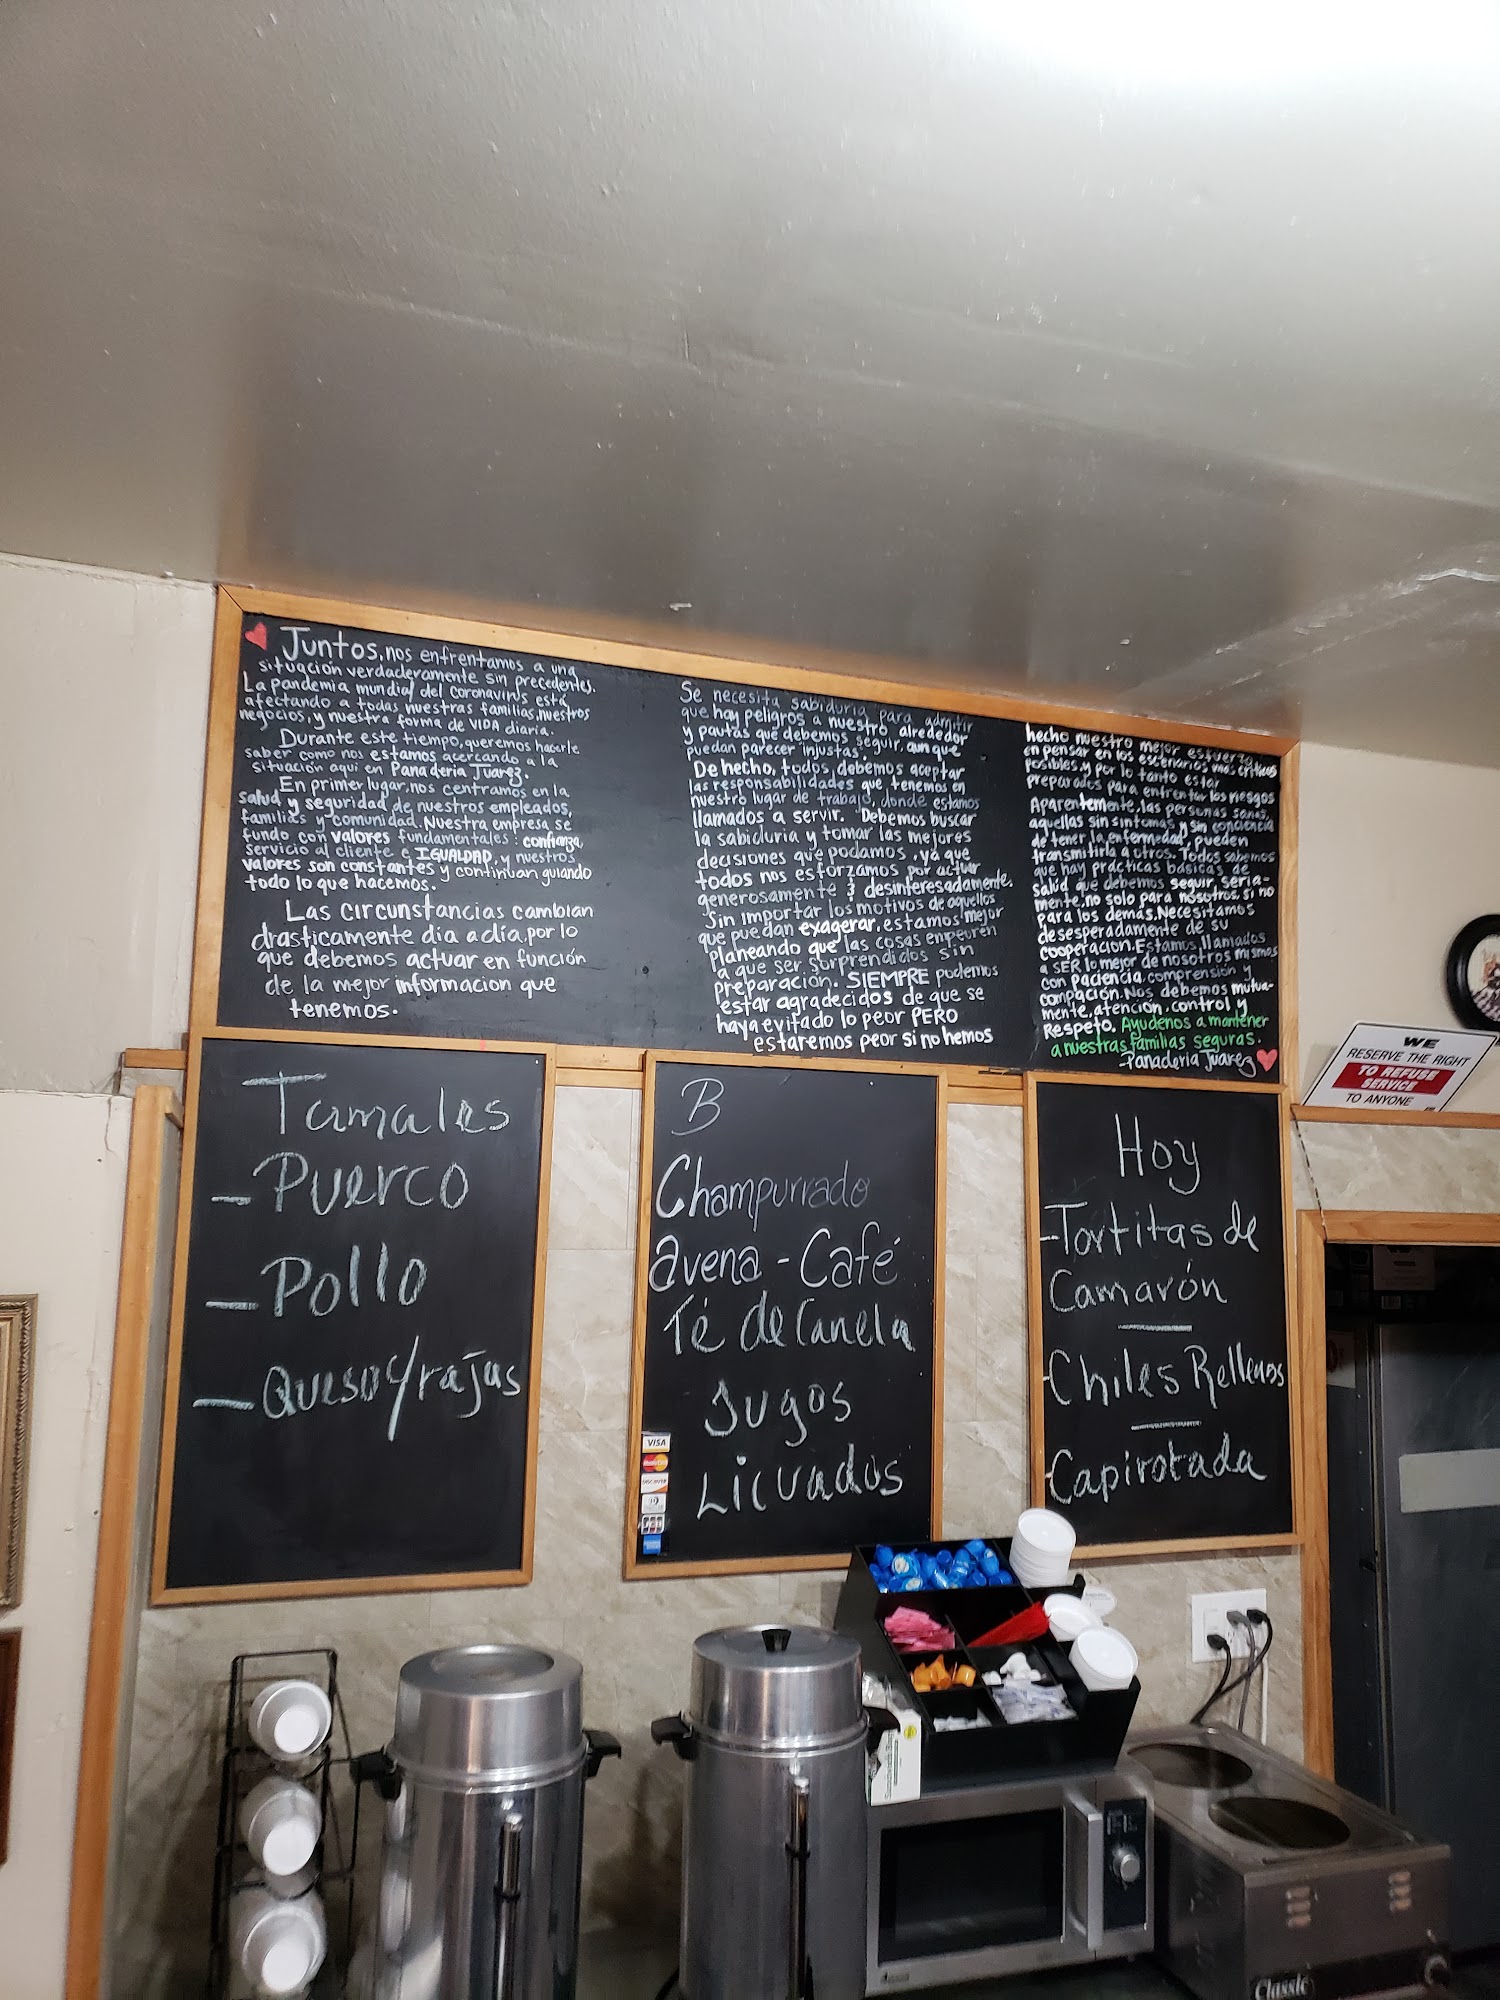 Juntos, nos enfrentamos a una
situación verdaderamente sin precedentes.
La pandemia mundial del coronavirus está
afectando a todas nuestras familias, nuestros
negocios, y nuestra forma de VIDA diaria.
Durante este tiempo, queremos hacerle
saber como nos estamos acercando a la
situación aquí en Panaderia Juarez.
En primer lugar, nos centramos en la
salud y seguridad de nuestros empleados,
familias y comunidad. Nuestra empresa se
fundo con valores fundamentales: confianza,
servicio al cliente e IGUALDAD, y nuestros
valores son constantes y continuan guiando
todo lo que hacemos.
Las circunstancias cambian
drasticamente dia a dia, por lo
que debemos actuar en función
de la mejor informacion que
tenemos.
Se necesita sabiduria para admitir
que hay peligros a nuestro alrededor
y pautas que debemos seguir, aun que
puedan parecer injustas.
De hecho, todos debemos aceptar
las responsabilidades que tenemos en
nuestro lugar de trabajo, donde estamos
llamados a servir. Debemos buscar
la sabiduria y tomar las mejores
decisiones que podamos, ya que
todos nos esforzamos por actuar
generosamente & desinteresadamente.
Sin importar los motivos de aquellos
que puedan exagerar, estamos mejor
planeando que las cosas empeoren
a que ser sorprendidos sin
preparación. SIEMPRE podemos
estar agradecidos de que se
haya evitado lo peor PERO
estaremos peor si no hemos
hecho nuestro mejor esfuerzo
en pensar en los escenarios mas criticos
posibles y por lo tanto estar
preparados para enfrentar los riesgos
Aparentemente, las personas sanas,
aquellas sin sintomas y sin conciencia
de tener la enfermedad, pueden
transmitirla a otros. Todos sabemos
que hay practicas basicas de
salud que debemos seguir, seria-
mente, no solo para nosotros, si no
para los demás. Necesitamos
desesperadamente de su
cooperacion. Estamos llamados
a SER lo mejor de nosotros mismos
con paciencia, comprension y
compación. Nos debemos mutua-
mente, atención, control y
Respeto. Ayudenos a mantener
a nuestras familias seguras.
-Panaderia Juarez
Tamales
-Puerco
-Pollo
-Queso c/rajas
B
Champurrado
avena - Café
Té de Canela
Jugos
Licuados
VISA
MasterCard
DISCOVER
JCB
Hoy
-Tortitas de
Camarón
-Chiles Rellenos
-Capirotada
WE
RESERVE THE RIGHT
TO REFUSE
SERVICE
TO ANYONE
Classic